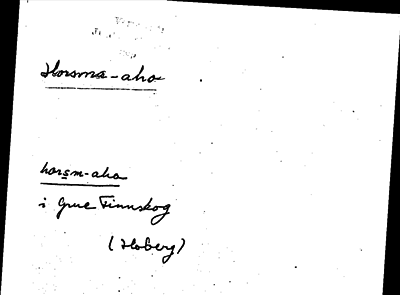 Horsma-aho
horsm-aho
i Grue Finnskog
(Hoberg)